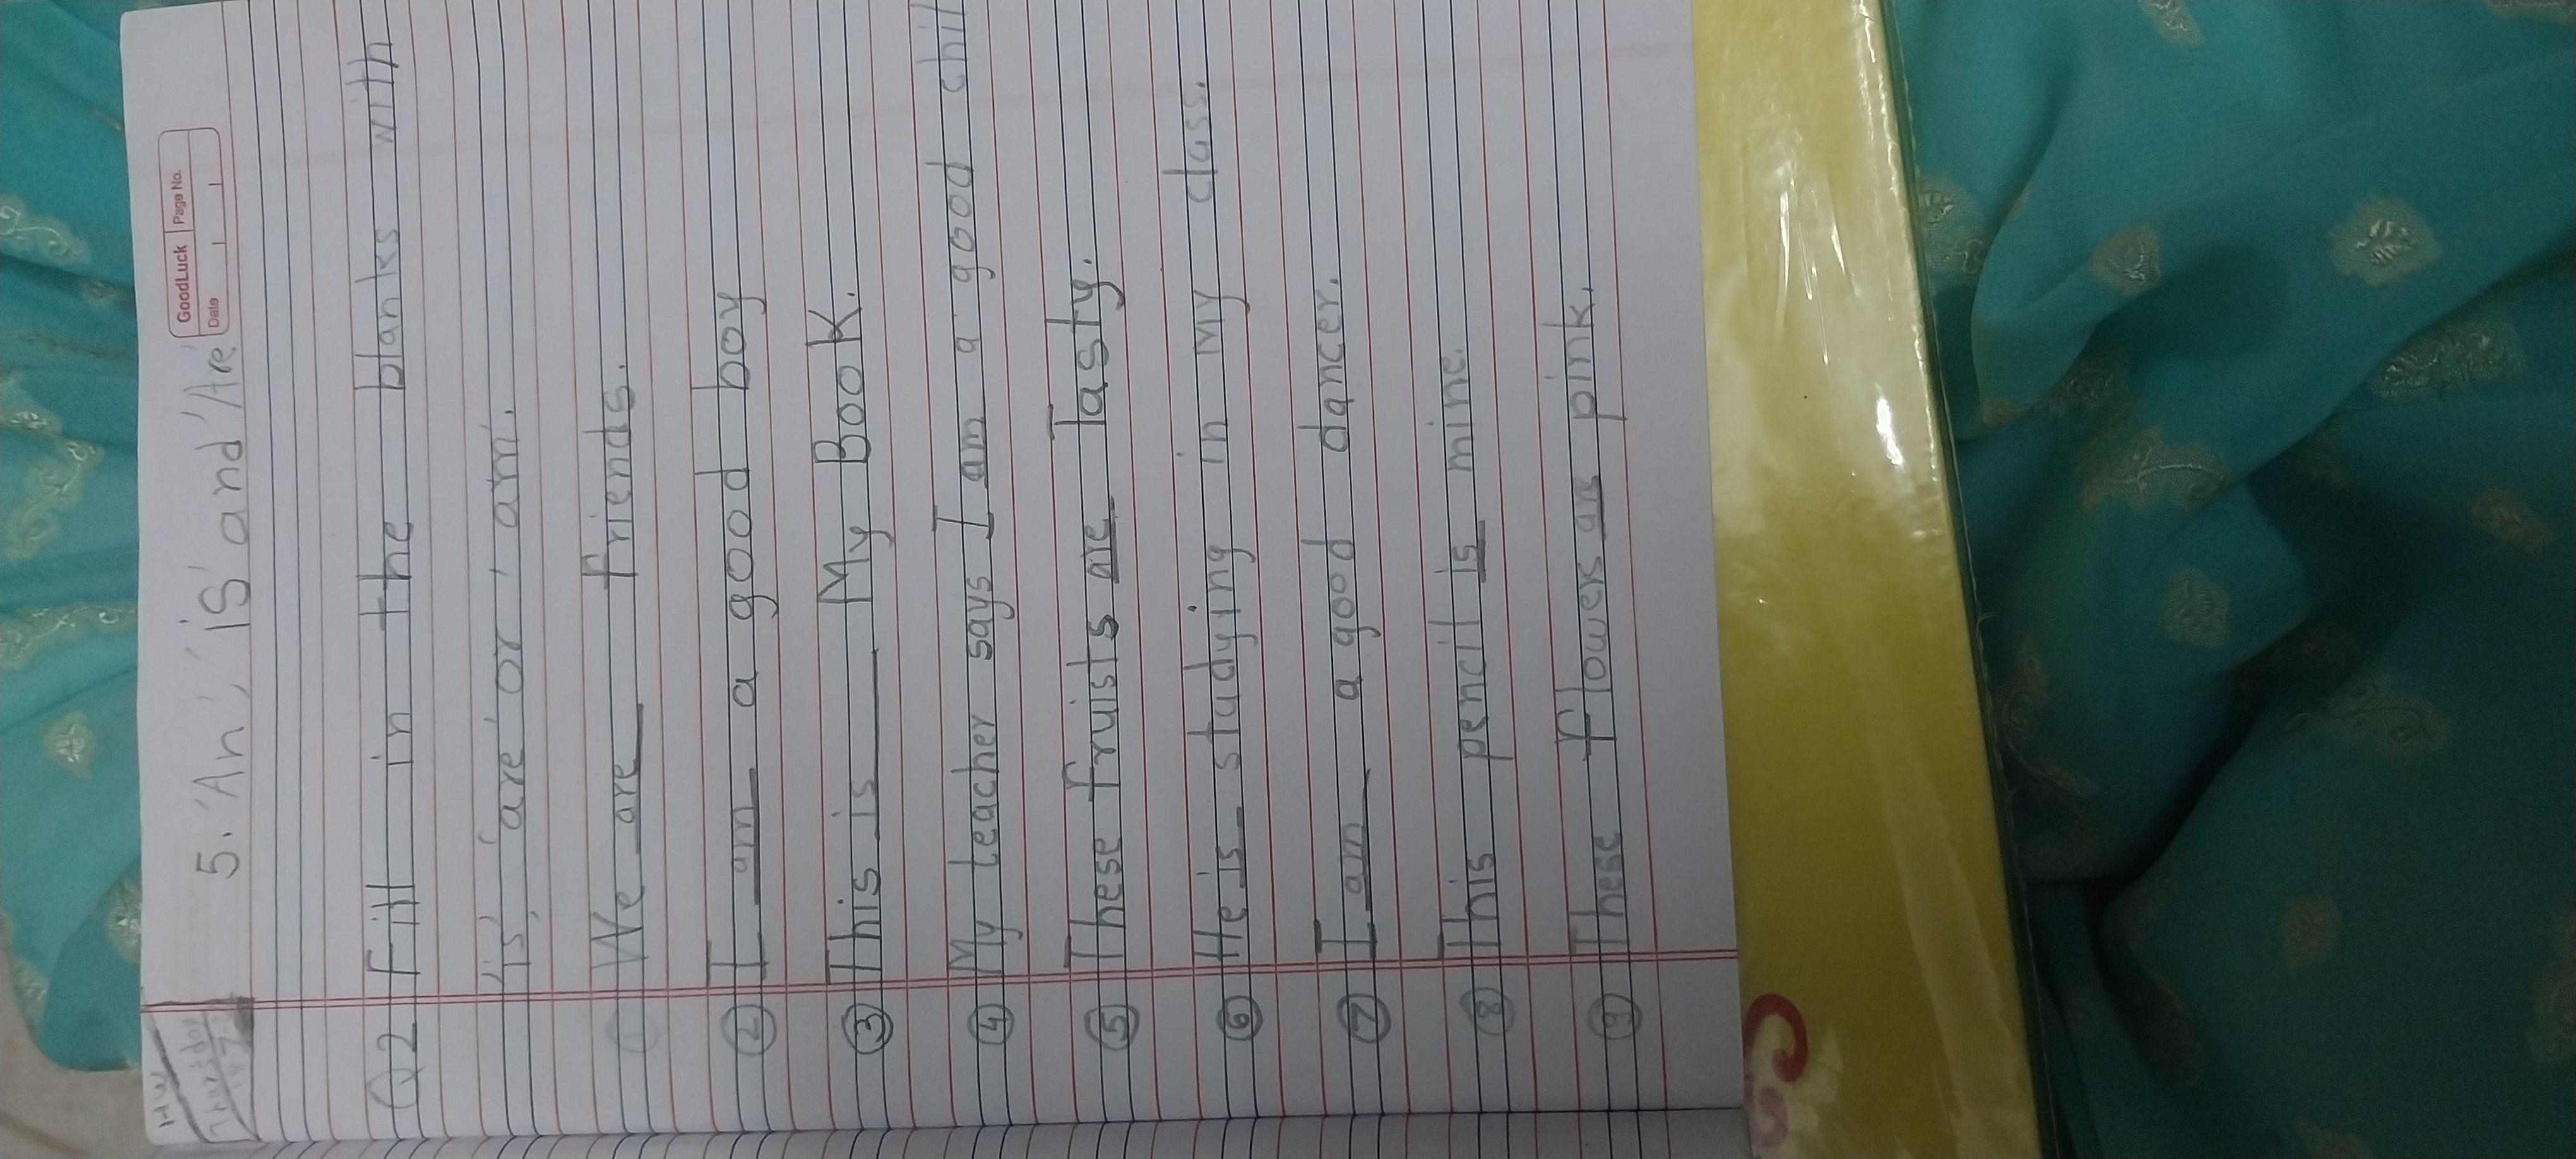 HW
Thursday
GoodLuck Page No.
Date
5. 'An', 'is' and 'Are'
Q2 Fill in the blanks with
'is', 'are' or 'am'.
① We are friends.
② I am a good boy
③ This is My Book.
④ My teacher says I am a good chil
⑤ These fruists are Tasty.
⑥ He is studying in My class.
⑦ I am a good dancer.
⑧ This pencil is mine.
⑨ These flowers are pink.